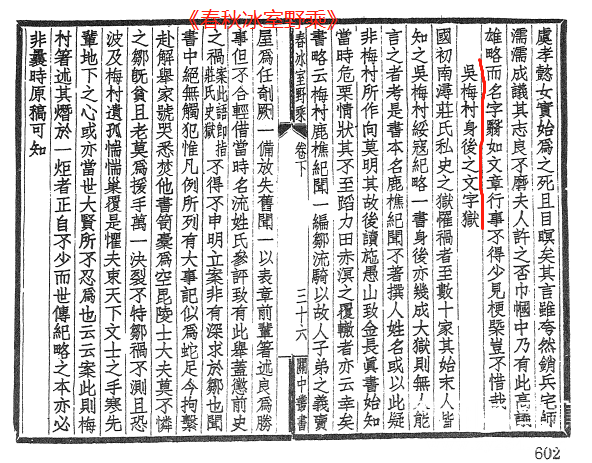 《春秋冰室野乘》
虞孝懿女實始爲之死且目瞑矣其言雖夸然銷兵宅師
濡濡成議其志良不磨夫人許之否巾幗中乃有此高議
雄略而名字翳如文章行事不得少見梗槩豈不惜哉
吳梅村身後之文字獄
國初南潯莊氏私史之獄罹禍者至數十家其始末人皆
知之吳梅村綏寇紀略一書身後亦幾成大獄則無人能
言之者考是書本名鹿樵紀聞不著撰人姓名或以此疑
非梅村所作向莫明其故後讀施愚山致金長眞書始知
當時危栗情狀其不至蹈力田赤溟之覆轍者亦云幸矣
書略云梅村鹿樵紀聞一編鄒流騎以故人子弟之義賣
春冰室野乘 卷下 三十六 關中叢書
屋爲任剞厥一備放失舊聞一以表章前輩著述良爲勝
事但不合輕借當時名流姓氏參評致有此舉蓋懲前史
之禍案此語卽指莊氏史獄不得不申明立案非有深求於鄒也聞
書中絕無觸犯惟凡例所列有大事記似爲蛇足今拘繫
赴解舉家號哭悉焚他書笥橐爲空毘陵士大夫莫不憐
之鄒旣貧且老莫爲援手萬一決裂不特鄒禍不測且恐
波及梅村遺孤惴惴巢覆是懼夫束天下文士之手寒先
輩地下之心或亦當世大賢所不忍爲也云云案此則梅
村著述其燬於一炬者正自不少而世傳紀略之本亦必
非曩時原稿可知
602